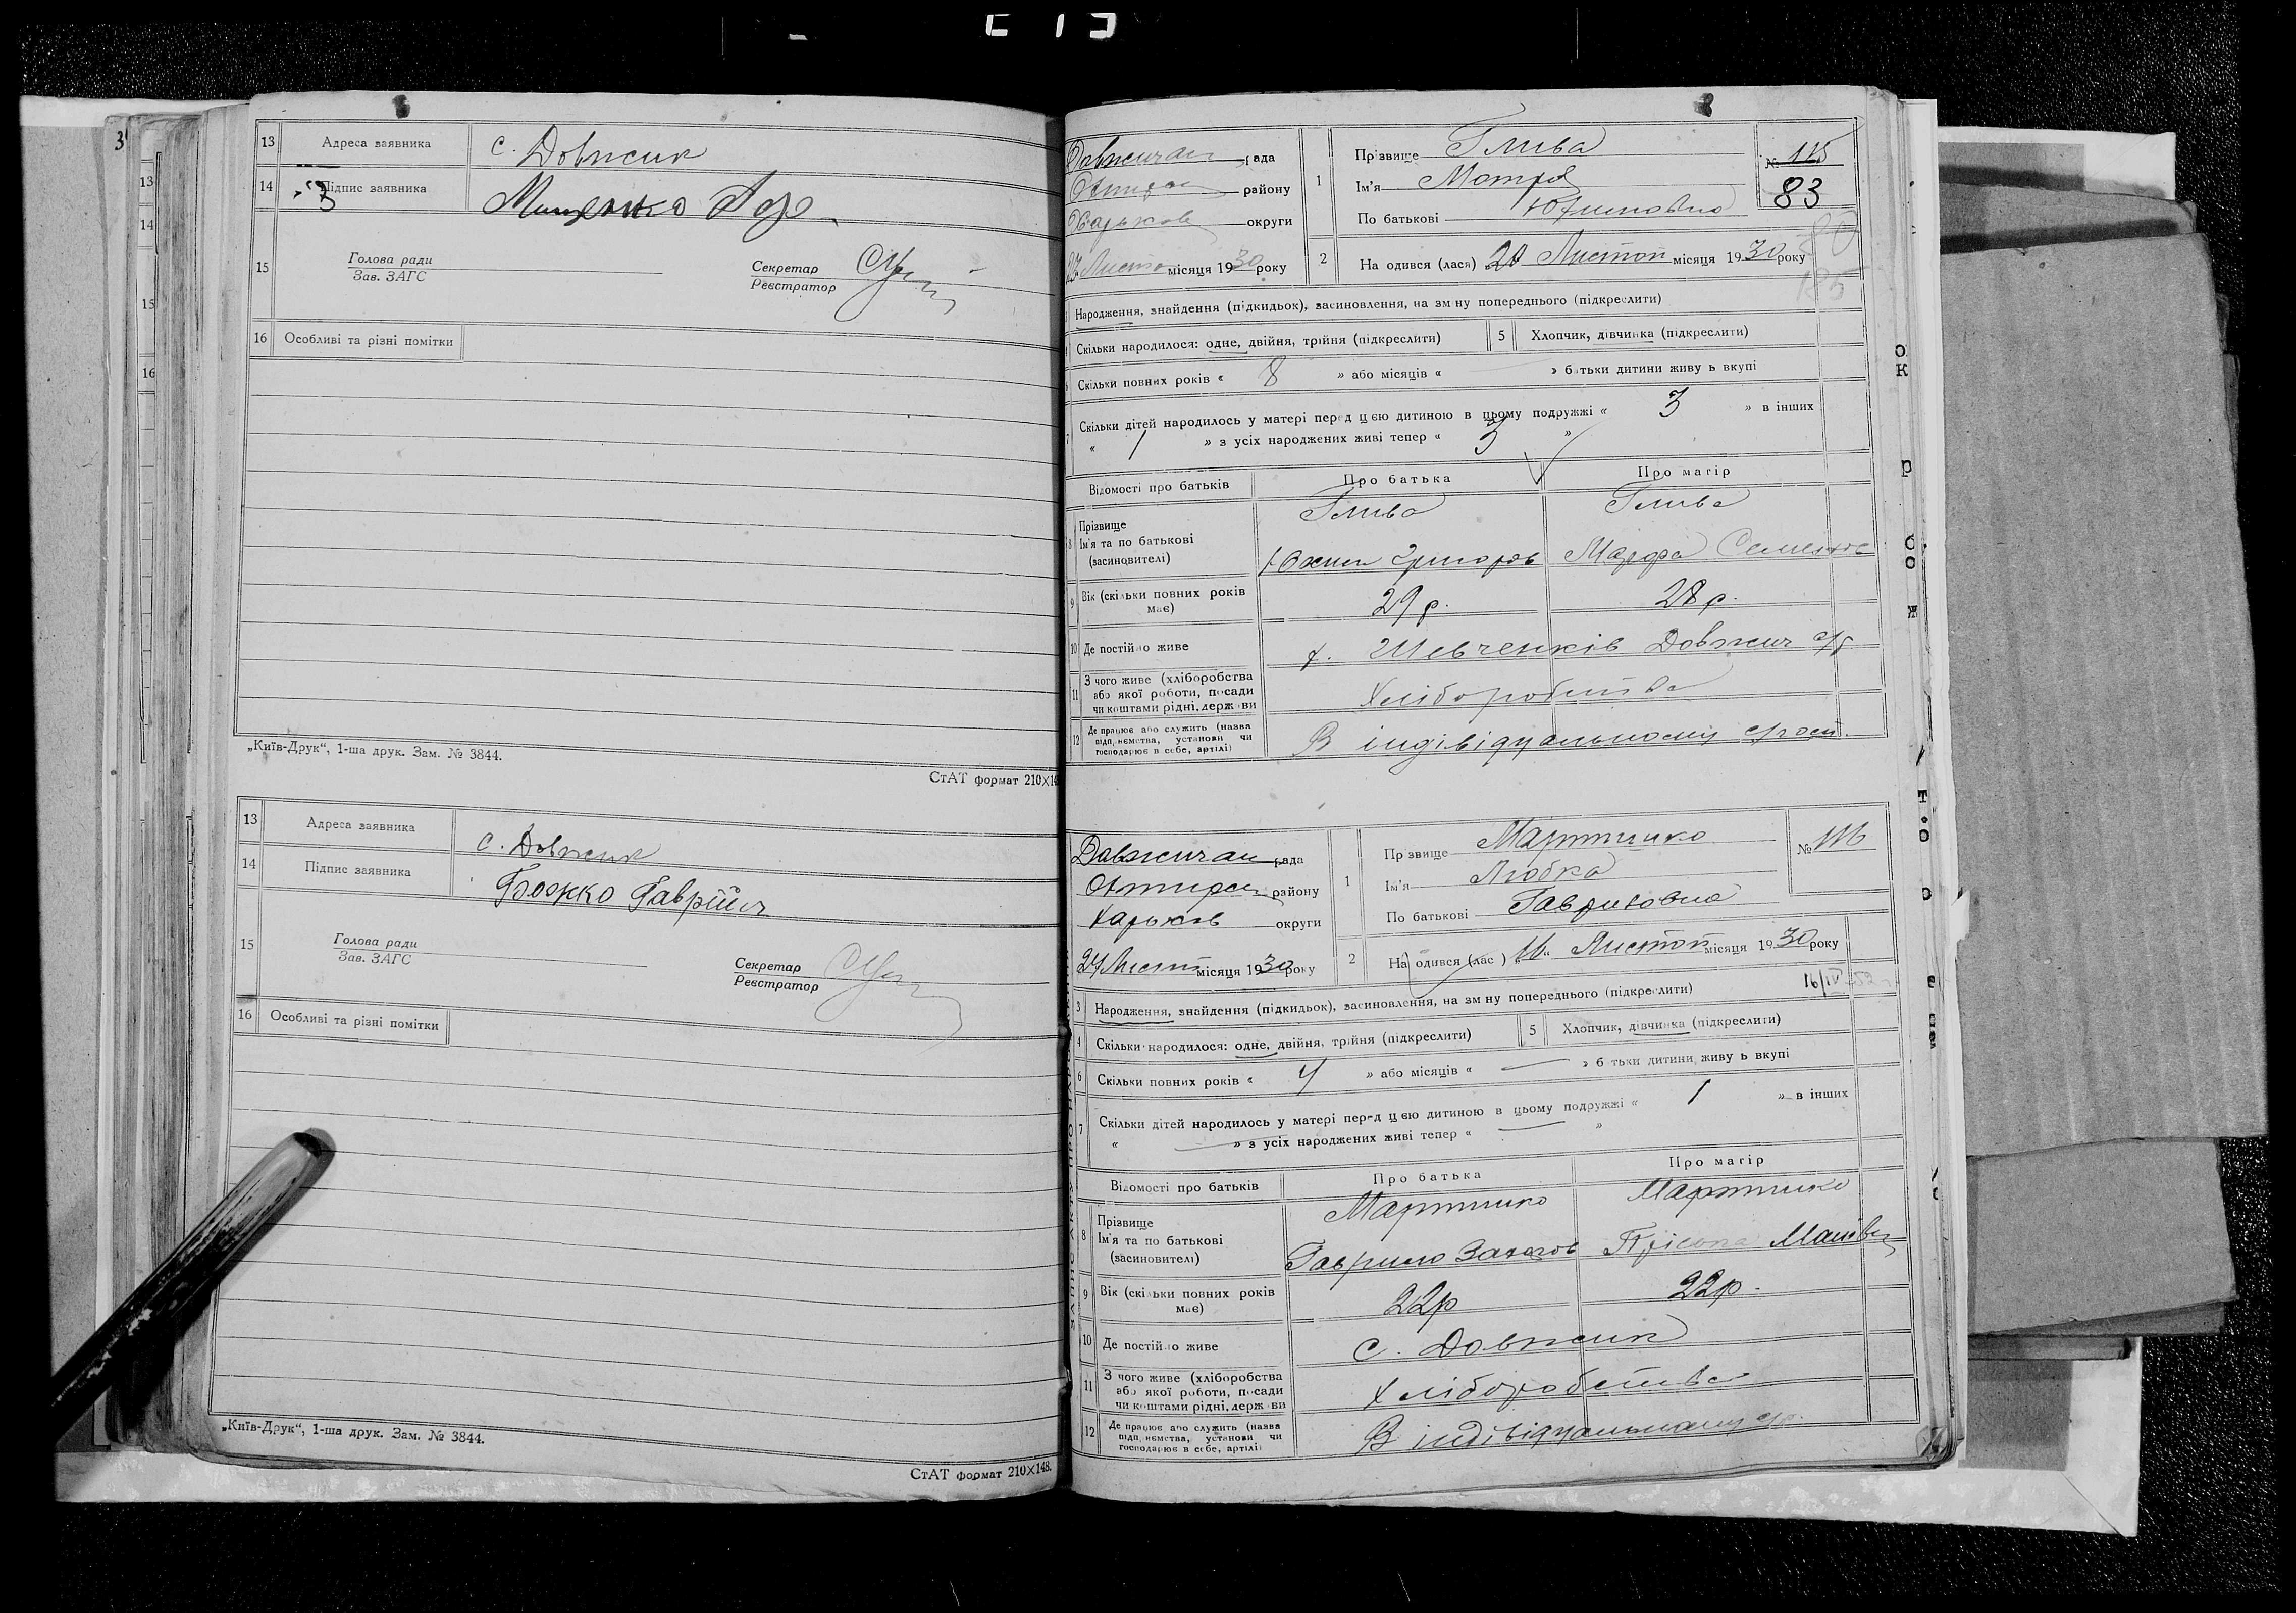 13 Адреса заявника с. Довжик
14 Підпис заявника Мищенко
15 Голова ради
Зав. ЗАГС
Секретар
Реєстратор
16 Особливі та різні помітки
„Київ-Друк“, 1-ша друк. Зам. № 3844.
СтАТ формат 210×14
13 Адреса заявника с. Довжик
14 Підпис заявника Божко
15 Голова ради
Зав. ЗАГС
Секретар
Реєстратор
16 Особливі та різні помітки
„Київ-Друк“, 1-ша друк. Зам. № 3844.
СтАТ формат 210×148.
Довжичан рада
району
Харьков округи
27 Листо місяця 1930 року
1 Прізвище Глива
Ім'я Мотря
По батькові Юхимовна
№ 115
83
2 На одився (лася) Листоп місяця 1930 року
Народження, знайдення (підкидьок), засиновлення, на зм ну попереднього (підкреслити)
Скільки народилося: одне, двійня, трійня (підкреслити)
5 Хлопчик, дівчинка (підкреслити)
Скільки повних років « 8 » або місяців « » б тьки дитини живу ь вкупі
Скільки дітей народилось у матері перед цією дитиною в цьому подружжі « 3 » в інших
« 1 » з усіх народжених живі тепер « 3 »
Відомості про батьків Про батька Про матір
8 Прізвище Глива Глива
Ім'я та по батькові Юхим Григоров Марфа Семенов
(засиновителі)
9 Вік (скільки повних років має) 29 р. 28 р.
10 Де постійно живе х. Шевченків Довжич с/р
11 З чого живе (хліборобства
або якої роботи, посади
чи коштами рідні, держ ви Хліборобства
12 Де працює або служить (назва
підп, иємства, установи чи
господарює в себе, артілі) В індівідуальному госп.
Довжичан рада
Охтирсь району
Харьков округи
27 Лист місяця 1930 року
1 Пр звище Мартинко
Ім'я Любка
По батькові Гавриловна
№ 116
2 На одився (лас ) 16 Листоп місяця 1930 року
16/IV
3 Народження, знайдення (підкидьок), засиновлення, на зм ну попереднього (підкреслити)
4 Скільки народилося: одне, двійня, трійня (підкреслити)
5 Хлопчик, дівчинка (підкреслити)
6 Скільки повних років « 4 » або місяців « — » б тьки дитини живу ь вкупі
7 Скільки дітей народилось у матері перед цією дитиною в цьому подружжі « 1 » в інших
« — » з усіх народжених живі тепер « — »
Відомості про батьків Про батька Про матір
8 Прізвище Мартинко Мартинко
Ім'я та по батькові Гаврило Захаров
(засиновителі)
9 Вік (скільки повних років має) 22р 22р.
10 Де постійно живе с. Довжик
11 З чого живе (хліборобства
або якої роботи, посади
чи коштами рідні, держ ви Хліборобства
12 Де працює або служить (назва
підп, иємства, установи чи
господарює в себе, артілі) В індівідуальному